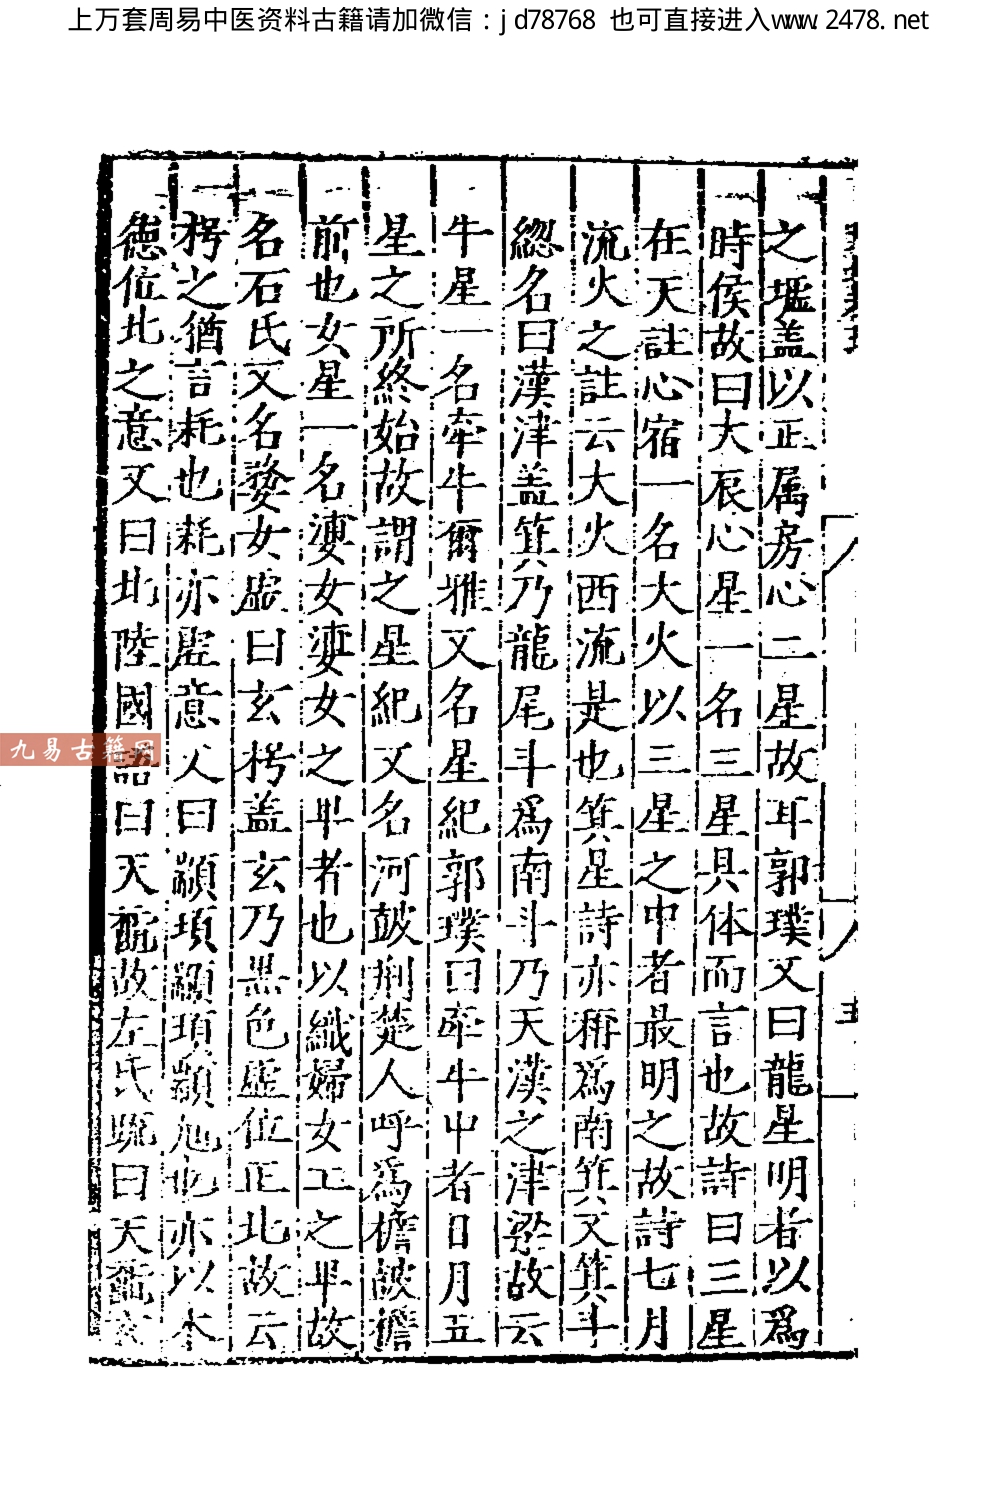 上万套周易中医资料古籍请加微信：jd78768 也可直接进入www.2478.net
之墟盖以正属房心二星故耳郭璞又曰龍星明者以爲
時侯故曰大辰心星一名三星具体而言也故詩曰三星
在天註心宿一名大火以三星之中者最明之故詩七月
流火之註云大火西流是也箕星詩亦稱爲南箕又箕斗
緫名曰漢津盖箕乃龍尾斗爲南斗乃天漢之津梁故云
牛星一名牽牛爾雅又名星紀郭璞曰牽牛中者日月五
星之所終始故謂之星紀又名河鼓荆楚人呼爲檐鼓檐
前也女星一名婁女婁女之卑者也以織婦女工之卑故
名石氏又名婺女虛曰玄枵盖玄乃黒色虛位正北故云
枵之猶言耗也耗亦虛意人曰顓頊顓頊顓也亦以木
德位北之意又曰北陸國語曰天黿故左氏曰天黿玄
五
九易古籍网